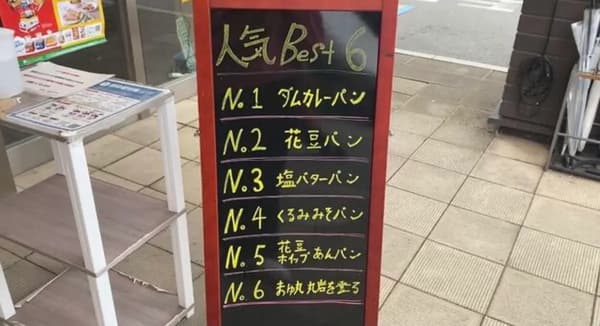 人気 Best 6
No.1 ダムカレーパン
No.2 花豆パン
No.3 塩バターパン
No.4 くるみみそパン
No.5 花豆ホイップあんパン
No.6 丸岩を登る